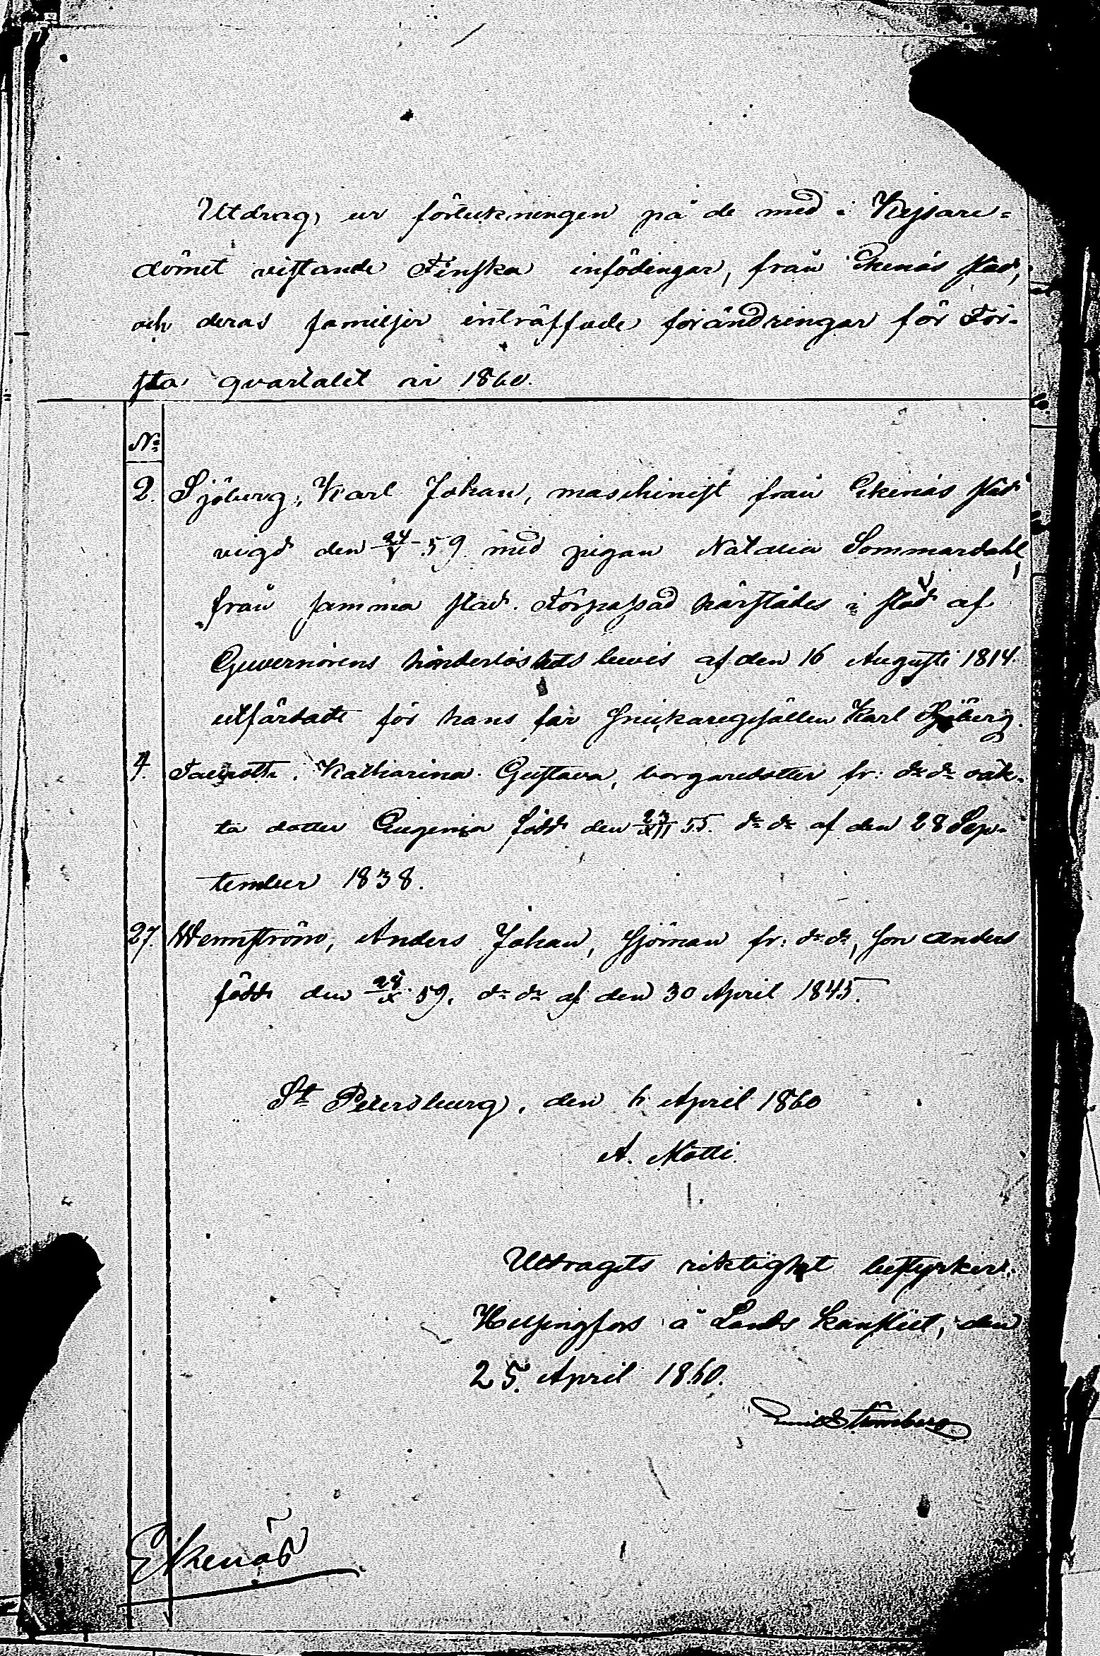 Utdrag, ur förteckningen på de med i Kejsare=
dömet vistande Finska infödingar, från Ekenäs stad,
och deras familjer inträffade förändringar för För-
sta qvartalet år 1860.
No
2. Sjöberg, Karl Johan, maschinist från Ekenäs stad
vigd den 24/V 59 med pigan Natalia Sommardahl
från samma stad. Förpassad härstädes i städ af
Guvernörens hinderlöshets bevis af den 16 Augusti 1814
utfärdadt för hans far Snickaregesällen Karl Sjöberg.
4. Katharina Gustava, borgaredotter fr: do do oäk-
ta dotter Eugenia född den 23/XII 55. do do af den 28 Sep-
tember 1838.
27. Wennström, Anders Johan, sjöman fr: do do, son Anders
född den 28/X 59, do do af den 30 April 1845.
St Petersburg, den 6 April 1860
A. Mötti.
Utdragets riktighet bestyrker.
Helsingfors å Lands kansliet, den
25. April 1860.
Emil Strömberg
Ekenäs